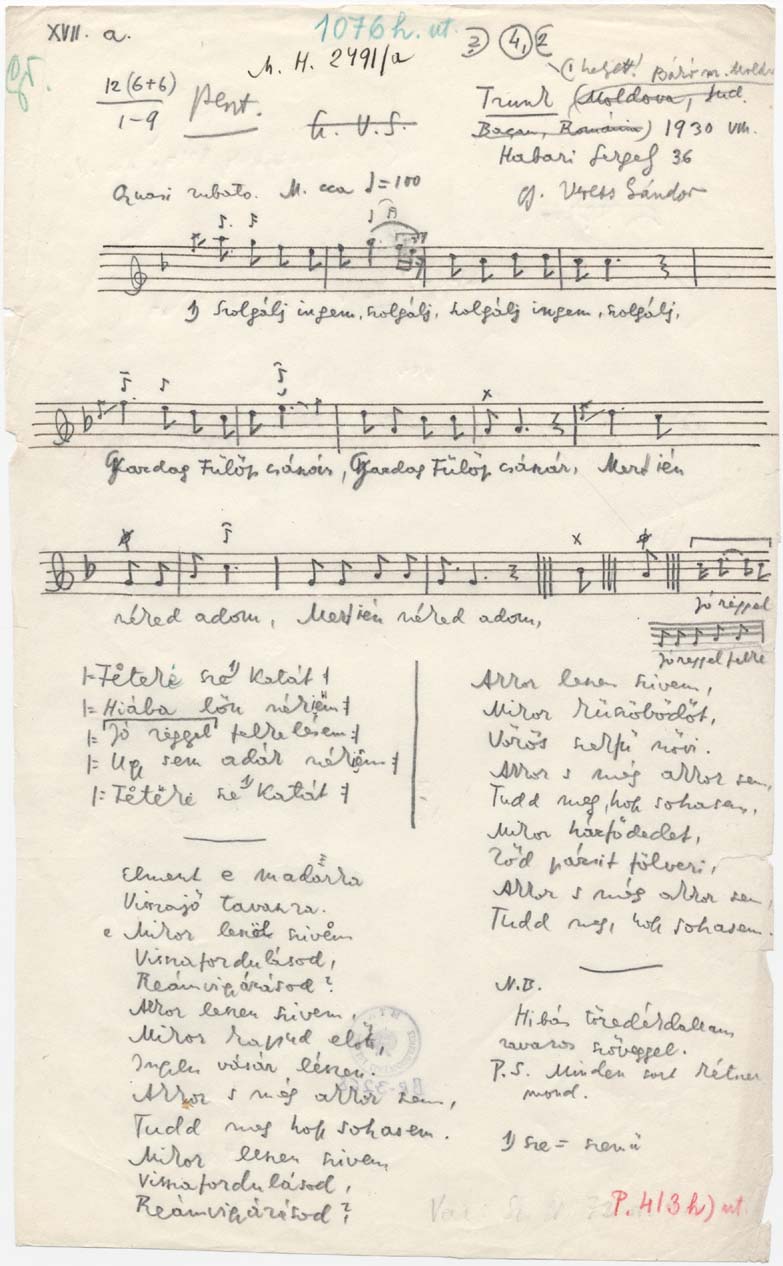 XVII. a.
1076 h. ut.
2) 4,2
M. H. 2491/a
12 (6+6)
1-9
pent.
Trunk (Moldova, Jud.
Bacau, România) 1930 VIII.
Habari Gergely 36
gy. Veress Sándor
Quasi rubato. M. cca ♩=100
1) Szolgálj ingem, szolgálj, szolgálj ingem, szolgálj,
Gazdag Fülöp csánár, Gazdag Fülöp csánár, Mert én
néked adom, Mert én néked adom,
Jó reggel
Jó reggel felke
|= Fekete sze 1) Katát =|
|= Hiába lön nékiëm =|
|= Jó reggel felkelésem =|
|= Ugy sem adár nékiëm =|
|= Fekete sze 1) Katát =|
Elment e madárka
Visszajő tavaszra.
e Mikor leszën szivem
Visszafordulásod,
Reámvigyázásod?
Akkor leszen szivem,
Mikor kapud előtt,
Ingyen vásár lészen.
Akkor s még akkor sem,
Tudd meg hogy sohasem.
Mikor leszen szivem
Visszafordulásod,
Reámvigyázásod?
Akkor leszen szivem,
Mikor küszöbödöt,
Vörös szerfü növi.
Akkor s még akkor sem,
Tudd meg, hogy sohasem,
Mikor házfödedet,
Zöd pázsit fölveri,
Akkor s még akkor sem
Tudd meg, hogy sohasem.
N.B.
Hibás töredékdallam
zavaros szöveggel.
P.S. Minden sort kétszer
mond.
1) sze = szemü
P. 413 h) ut.